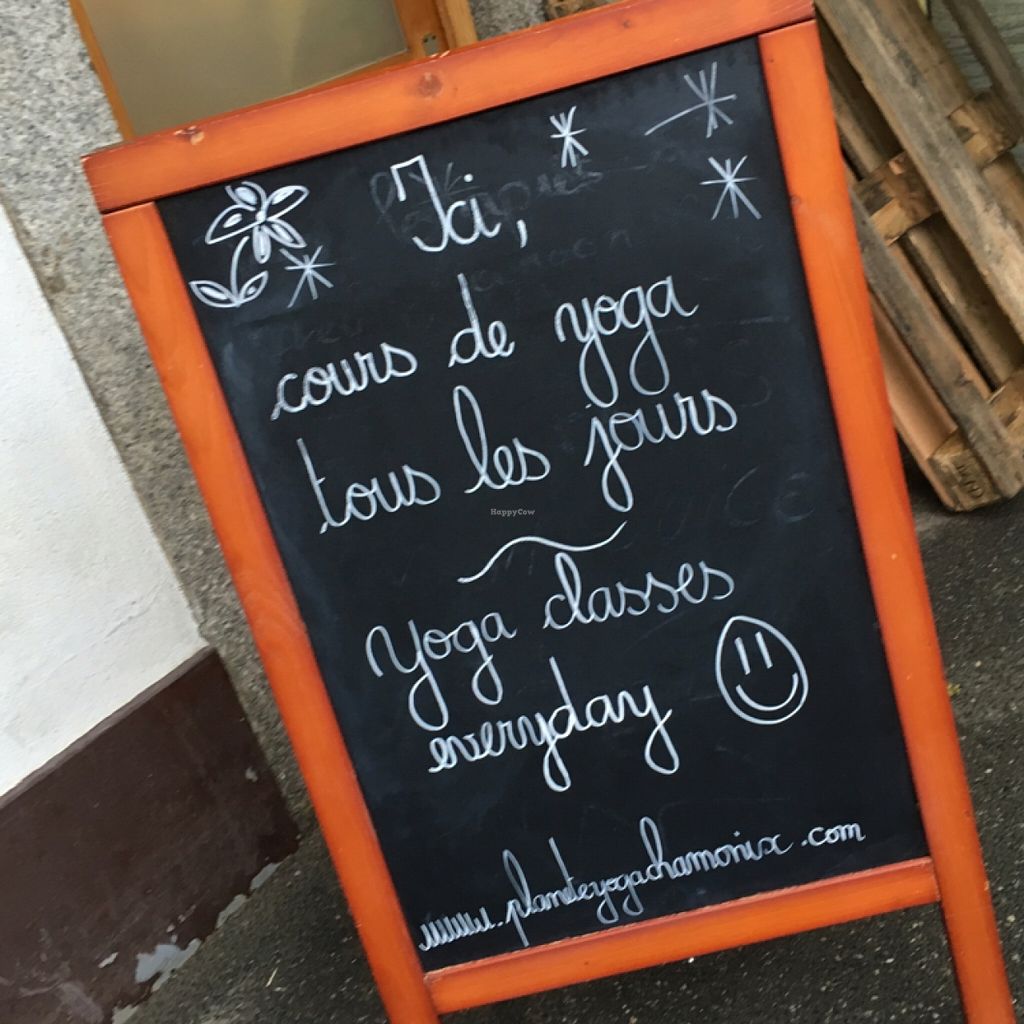 Ici,
cours de yoga
tous les jours
HappyCow
Yoga classes
everyday
www.planeteyogachamonix.com